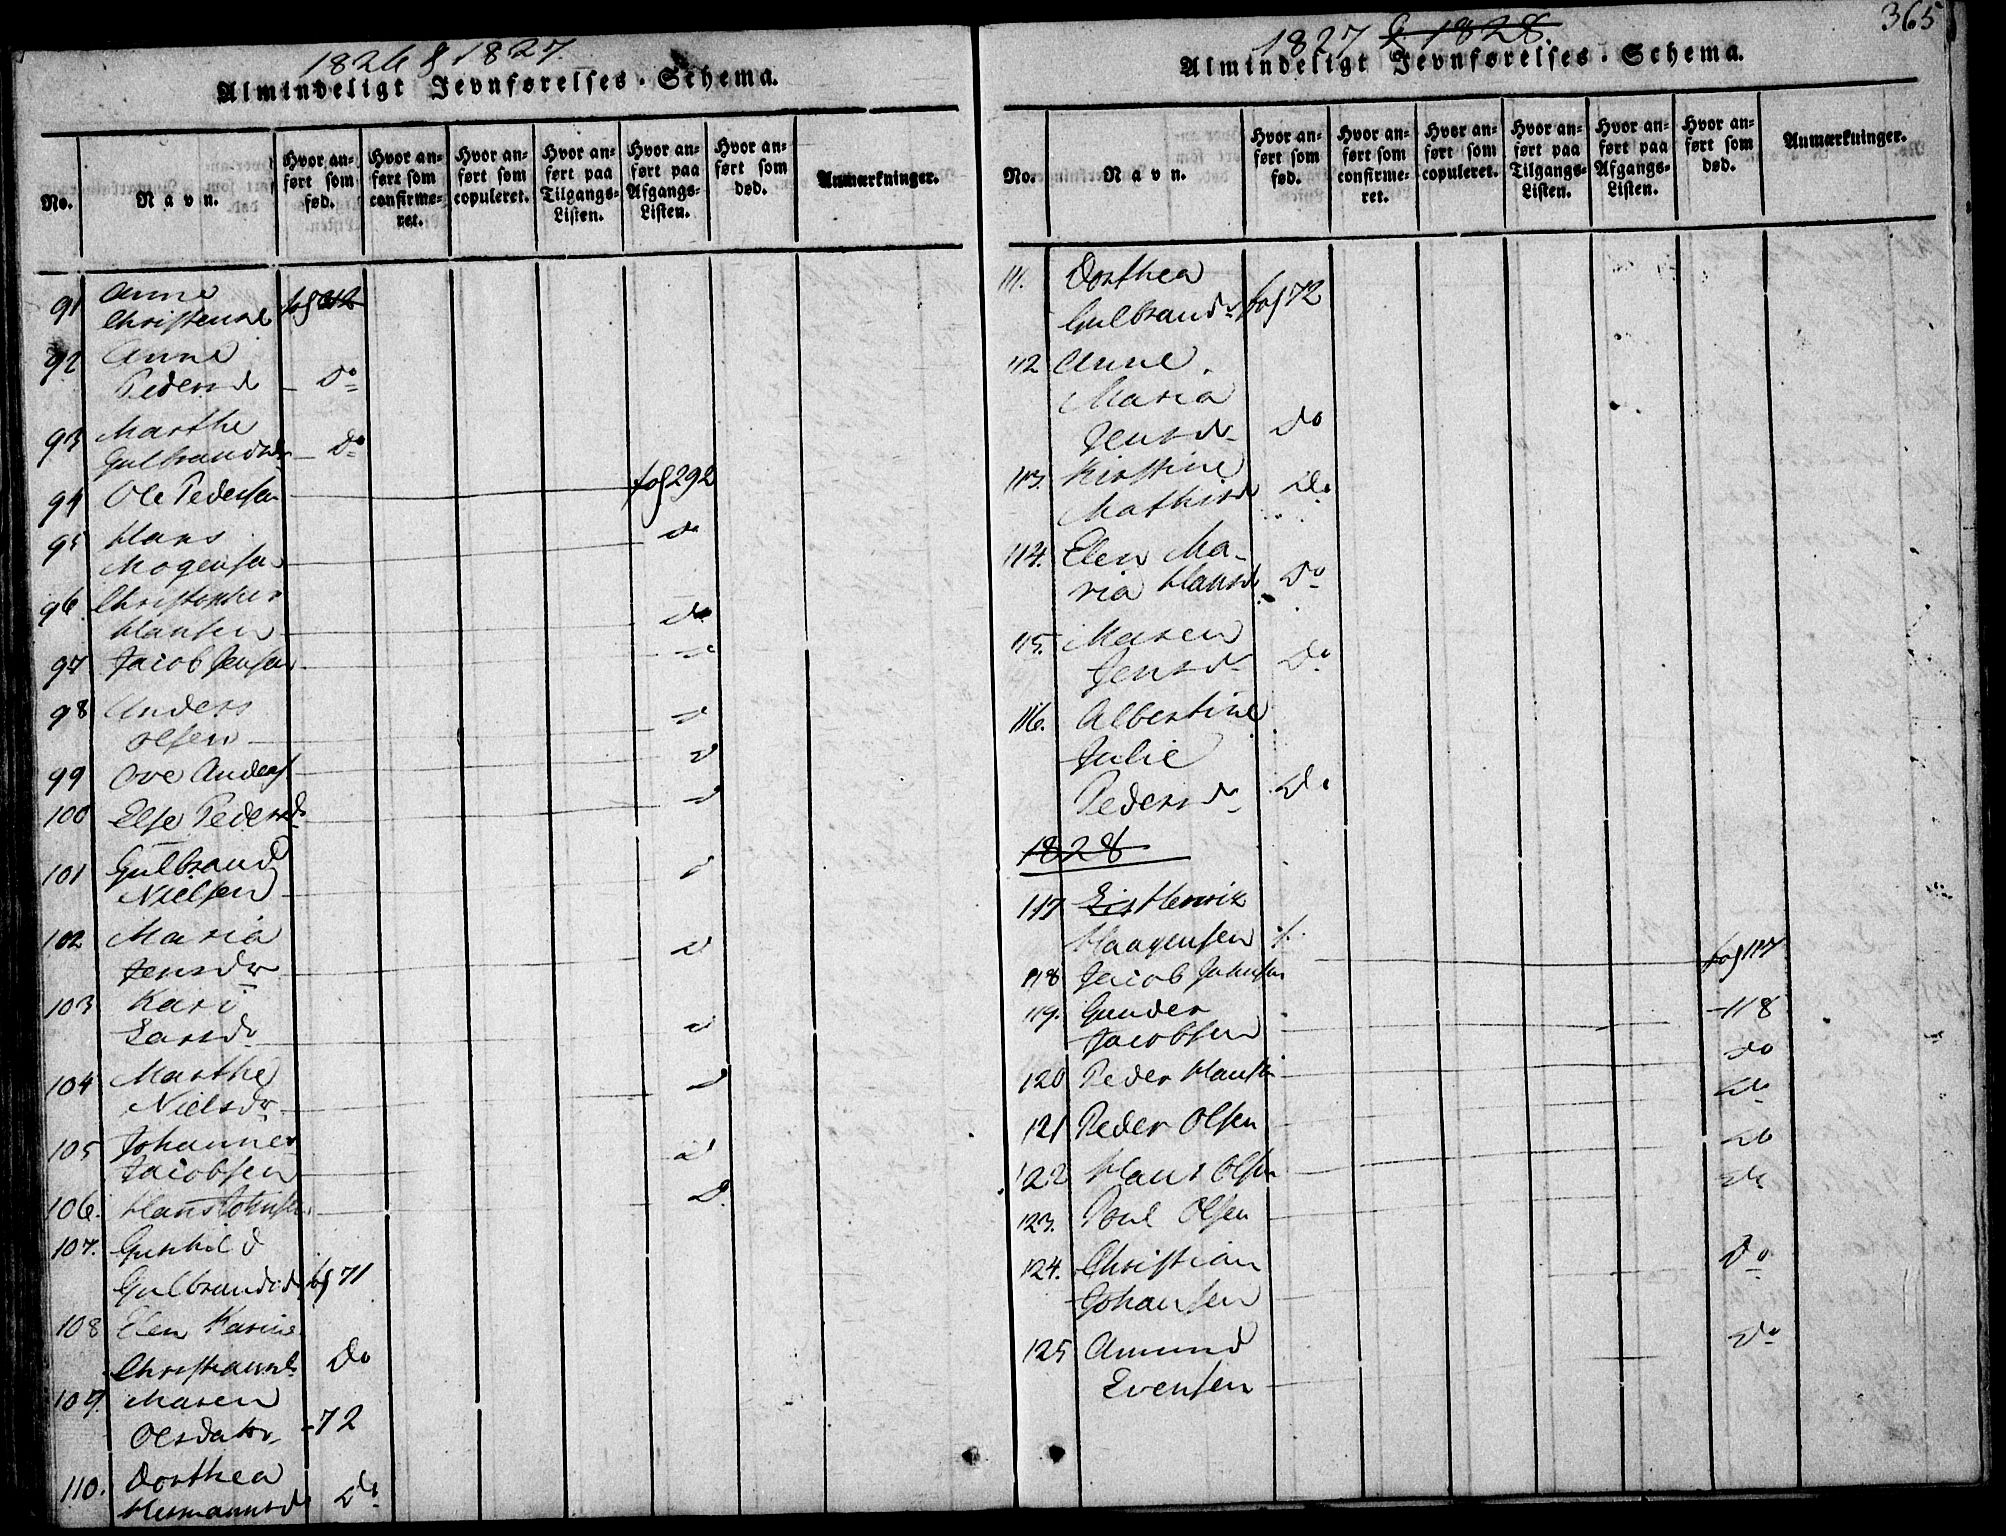 1826 & 1827.
Almindeligt Jevnførelses-Schema.
No.
Navn.
Hvor anført som fød.
Hvor anført som confirmeret.
Hvor anført som copuleret.
Hvor anført paa Tilgangs-Listen.
Hvor anført paa Afgangs-Listen.
Hvor anført som død.
Anmærkninger.
91 Anne
Christensd
92 Anne
Pedersd Do
93 Marthe
Gulbrandsd Do
94 Ole Pedersen fol 292
95 Hans Do
Mogensen
96 Christopher
Hansen Do
97 Jacob Jensen
98 Anders
Olsen
99 Ove Anders
100 Else Pedersd
101 Gulbrand
Nielsen
102 Maria
Jensdr
103 Kari
Larsdr
104 Marthe
Nielsdr
105 Johannes
Jacobsen
106. Hans Johnsen
107. Gunhild
Gulbrandsd fol 71
108 Elen Karine
Christiansd Do
109. Maren
Olsdatr. -72
110. Dorthea
Hermannsd Do
365
1827 & 1828.
Almindeligt Jevnførelses-Schema.
No.
Navn.
Hvor anført som fød.
Hvor anført som confirmeret.
Hvor anført som copuleret.
Hvor anført paa Tilgangs-Listen.
Hvor anført paa Afgangs-Listen.
Hvor anført som død.
Anmærkninger.
111. Dorthea
Gulbrandsd fol 72
112 Anne
Maria
Jensdr Do
113. Kirstine
Mathisd Do
114. Elen Ma-
ria Hansd Do
115. Maren
Jensdr Do
116. Albertine
Julie
Pedersdr Do
1828
117 Henrik
Haagensen
118 Jacob Johnsen fol 117
119. Gunder
Jacobsen -118
120 Peder Hansen Do
121 Peder Olsen Do
122 Hans Olsen Do
123. Poul Olsen Do
124. Christian Do
Johansen
125 Amund Do
Evensen